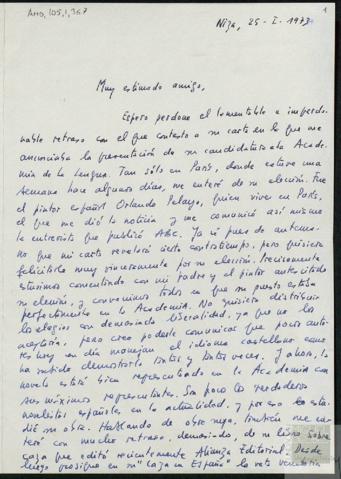 AMD, 105, 1, 367
1
Niza, 25-I-1973
Muy estimado amigo,
Espero perdone el lamentable e imperdo-
nable retraso con el que contesto a su carta en la que me
anunciaba la presentación de su candidatura a la Acade-
mia de la Lengua. Tan sólo en París, donde estuve una
semana hace algunos días, me enteré de su elección. Fue
el pintor español Orlando Pelayo, quien vive en París,
el que me dió la noticia y me comunicó así mismo
la entrevista que publicó ABC. Ya ni puedo
no que mi carta revelará cierto contratiempo, pero quisiera
felicitarle muy sinceramente por su elección. Precisamente
estuvimos comentando con mi padre y el pintor antes citado
su elección, y convenimos todos en que su puesto estaba
perfectamente en la Academia. No quisiera distribuir
los elogios con demasiada liberalidad, ya que no los
aceptaría, pero creo poderle comunicar que pocos auto-
res hoy en día manejan el idioma castellano como
ha sabido demostrarlo tantas y tantas veces. Y ahora, la
novela estará bien representada en la Academia con
sus máximos representantes. Son pocos los verdaderos
novelistas españoles en la actualidad, y por eso
dié su obra. Hablando de obra suya, también me en-
teré con mucho retraso, demasiado, de su libro sobre
caza que editó recientemente Alianza Editorial. Desde
luego prosigue en su "Caza en España" la veta